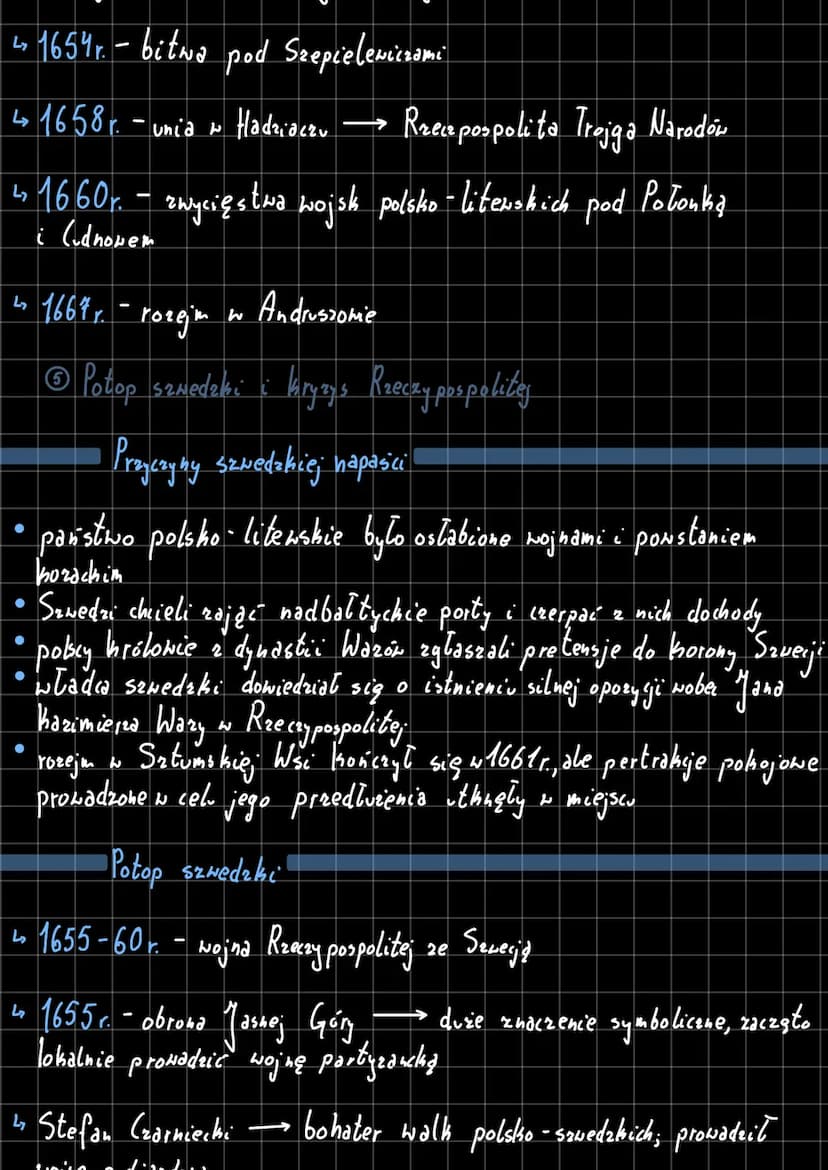 ↳ 1654r. - bitwa pod Szepielewiczami
↳ 1658r. - unia w Hadziaczu → Rzeczpospolita Trojga Narodów
↳ 1660r. - zwycięstwa wojsk polsko-litewskich pod Połonką
i Cudnowem
↳ 1667r. - rozejm w Andruszowie
⑤ Potop szwedzki i kryzys Rzeczypospolitej
Przyczyny szwedzkiej napaści
• państwo polsko-litewskie było osłabione wojnami i powstaniem
kozackim
• Szwedzi chcieli zająć nadbałtyckie porty i czerpać z nich dochody
• polscy królowie z dynastii Wazów zgłaszali pretensje do korony Szwecji
• władca szwedzki dowiedział się o istnieniu silnej opozycji wobec Jana
Kazimierza Wazy w Rzeczypospolitej
• rozejm w Sztumskiej Wsi kończył się w 1661r., ale pertrakcje pokojowe
prowadzone w celu jego przedłużenia utknęły w miejscu
Potop szwedzki
↳ 1655-60r. - wojna Rzeczypospolitej ze Szwecją
↳ 1655r. - obrona Jasnej Góry → duże znaczenie symboliczne, zaczęto
lokalnie prowadzić wojnę partyzancką
↳ Stefan Czarniecki → bohater walk polsko-szwedzkich; prowadził